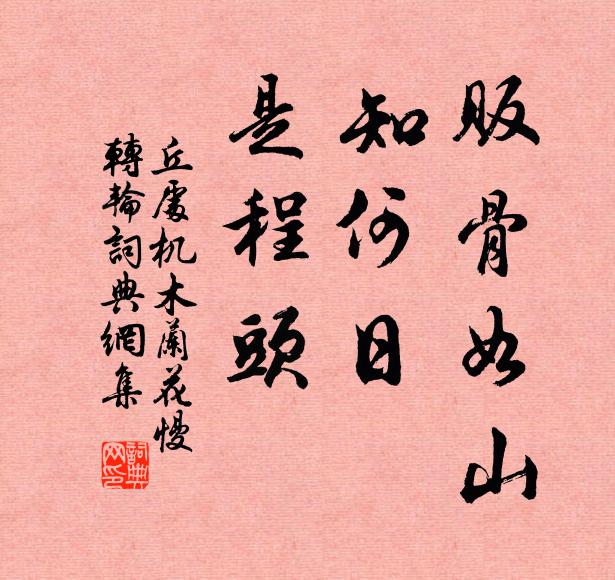 販骨如山
知何日
是程頭
丘處机木蘭花慢
轉輪詞典網集
詞典网印